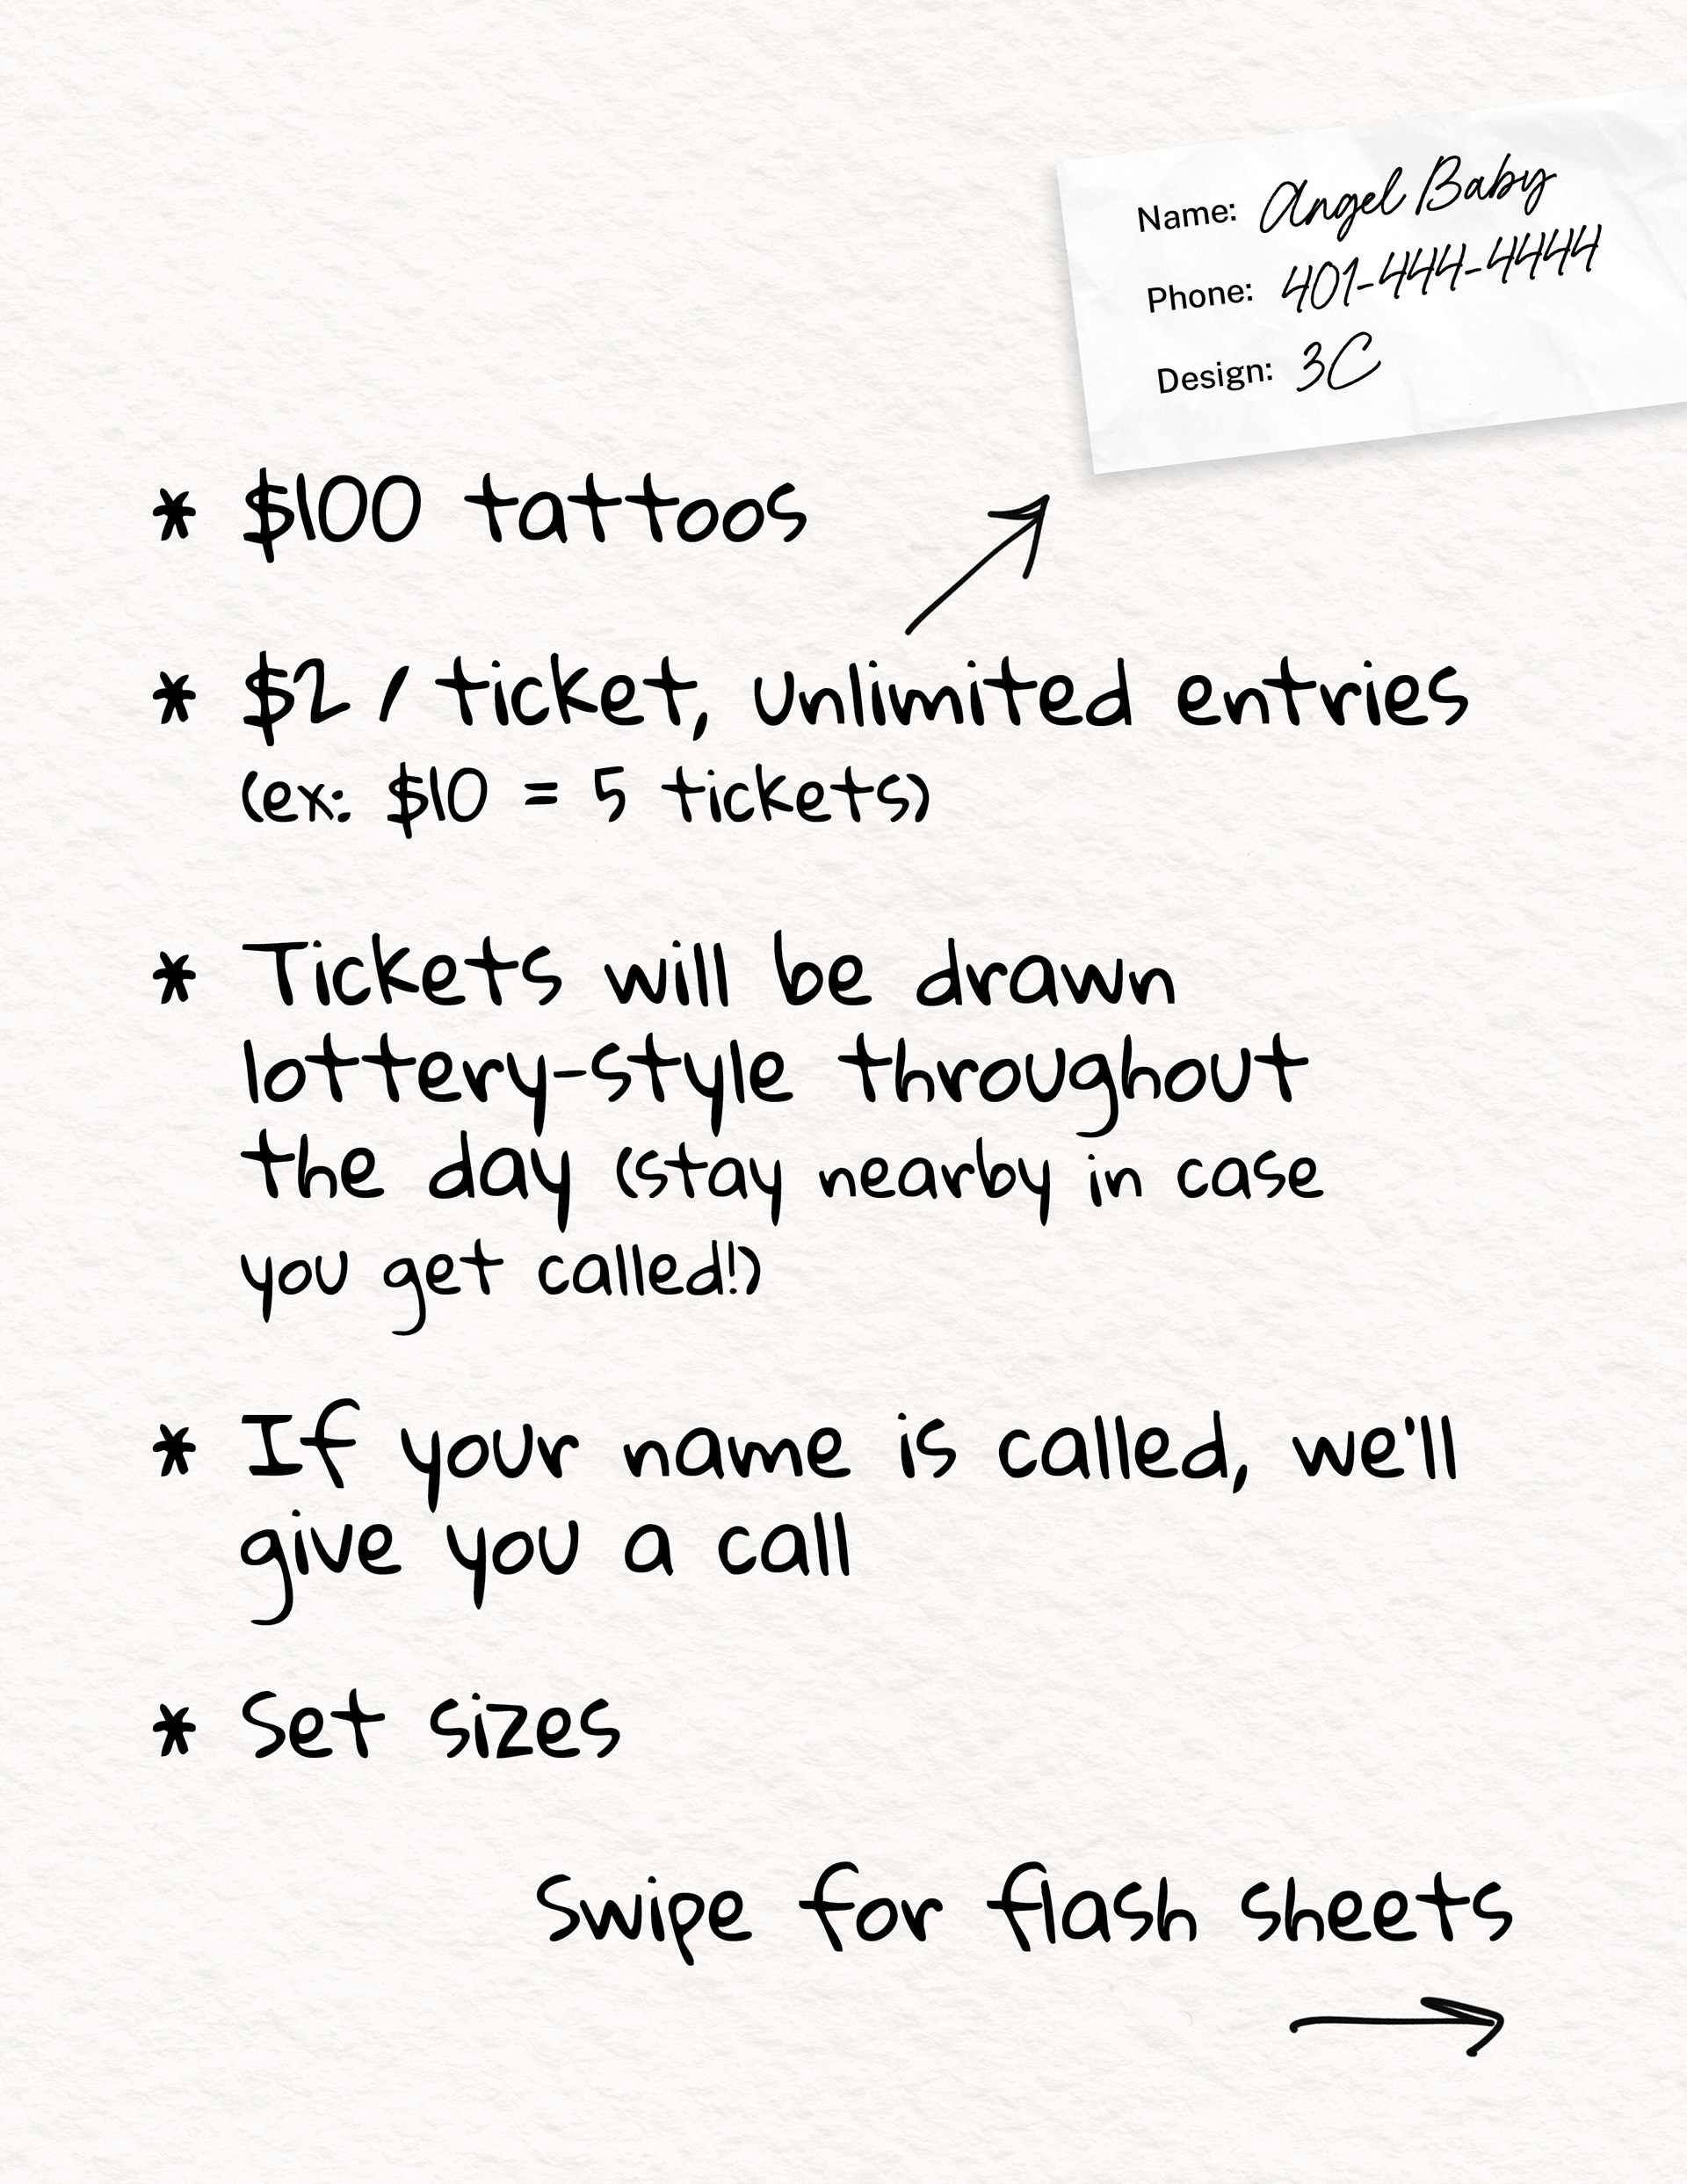 Name: Angel Baby
Phone: 401-444-4444
Design: 3C
* $100 tattoos
* $2 / ticket, unlimited entries
(ex: $10 = 5 tickets)
* Tickets will be drawn
lottery-style throughout
the day (stay nearby in case
you get called!)
* If your name is called, we'll
give you a call
* Set sizes
Swipe for flash sheets